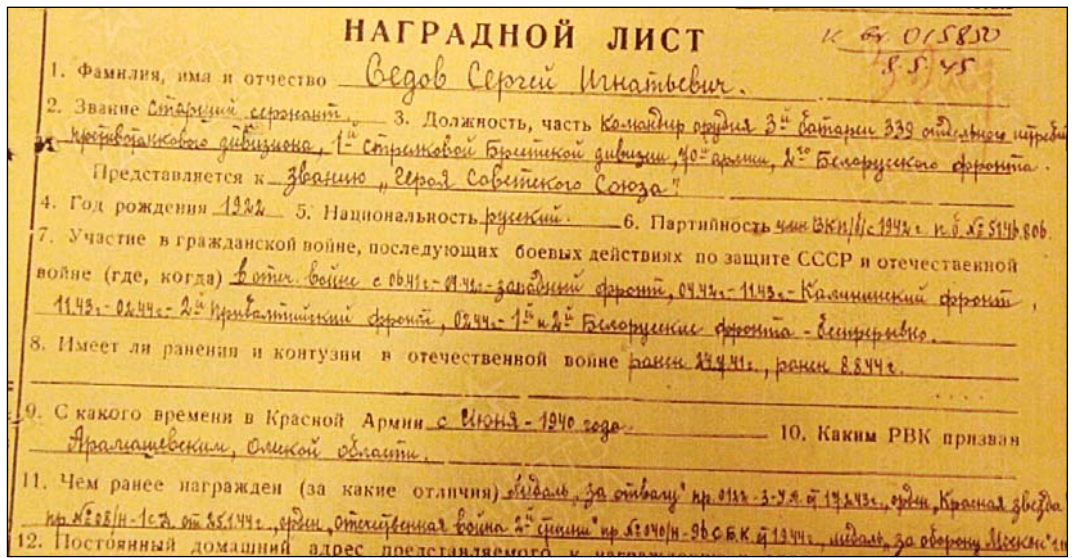 НАГРАДНОЙ ЛИСТ
к вх. 015850
8.5.45
1. Фамилия, имя и отчество Седов Сергей Игнатьевич.
2. Звание Старший сержант. 3. Должность, часть командир орудия 3й батареи 339 отдельного истреби
противотанкового дивизиона, 1й Стрелковой Брестской дивизии, 70й армии, 2го Белорусского фронта.
Представляется к званию „Героя Советского Союза"
4. Год рождения 1922 5. Национальность русский. 6. Партийность член ВКП/б/ с 1942 г. п.б. № 5146806.
7. Участие в гражданской войне, последующих боевых действиях по защите СССР и отечественной
войне (где, когда) в отеч. войне с 06.41г.-04.42г.-западный фронт, 04.42г.-11.43.-Калининский фронт,
11.43.-02.44г.-2й Прибалтийский фронт, 02.44г.-1й и 2й Белорусские фронта - беспрерывно.
8. Имеет ли ранения и контузии в отечественной войне ранен 27.7.41г., ранен 8.8.44г.
9. С какого времени в Красной Армии с Июня-1940 года 10. Каким РВК призван
Арамашевским, Омской области.
11. Чем ранее награжден (за какие отличия) Медаль „за отвагу" пр. от 17.2.43г., орден „Красная звезда
пр. № 08/н-1с.д. от 25.1.44г., орден „отечественная война 2й степени" пр. № 040/н-96 С.Б.К. 1944г., медаль „за оборону Москвы"
12. Постоянный домашний адрес представляемого к